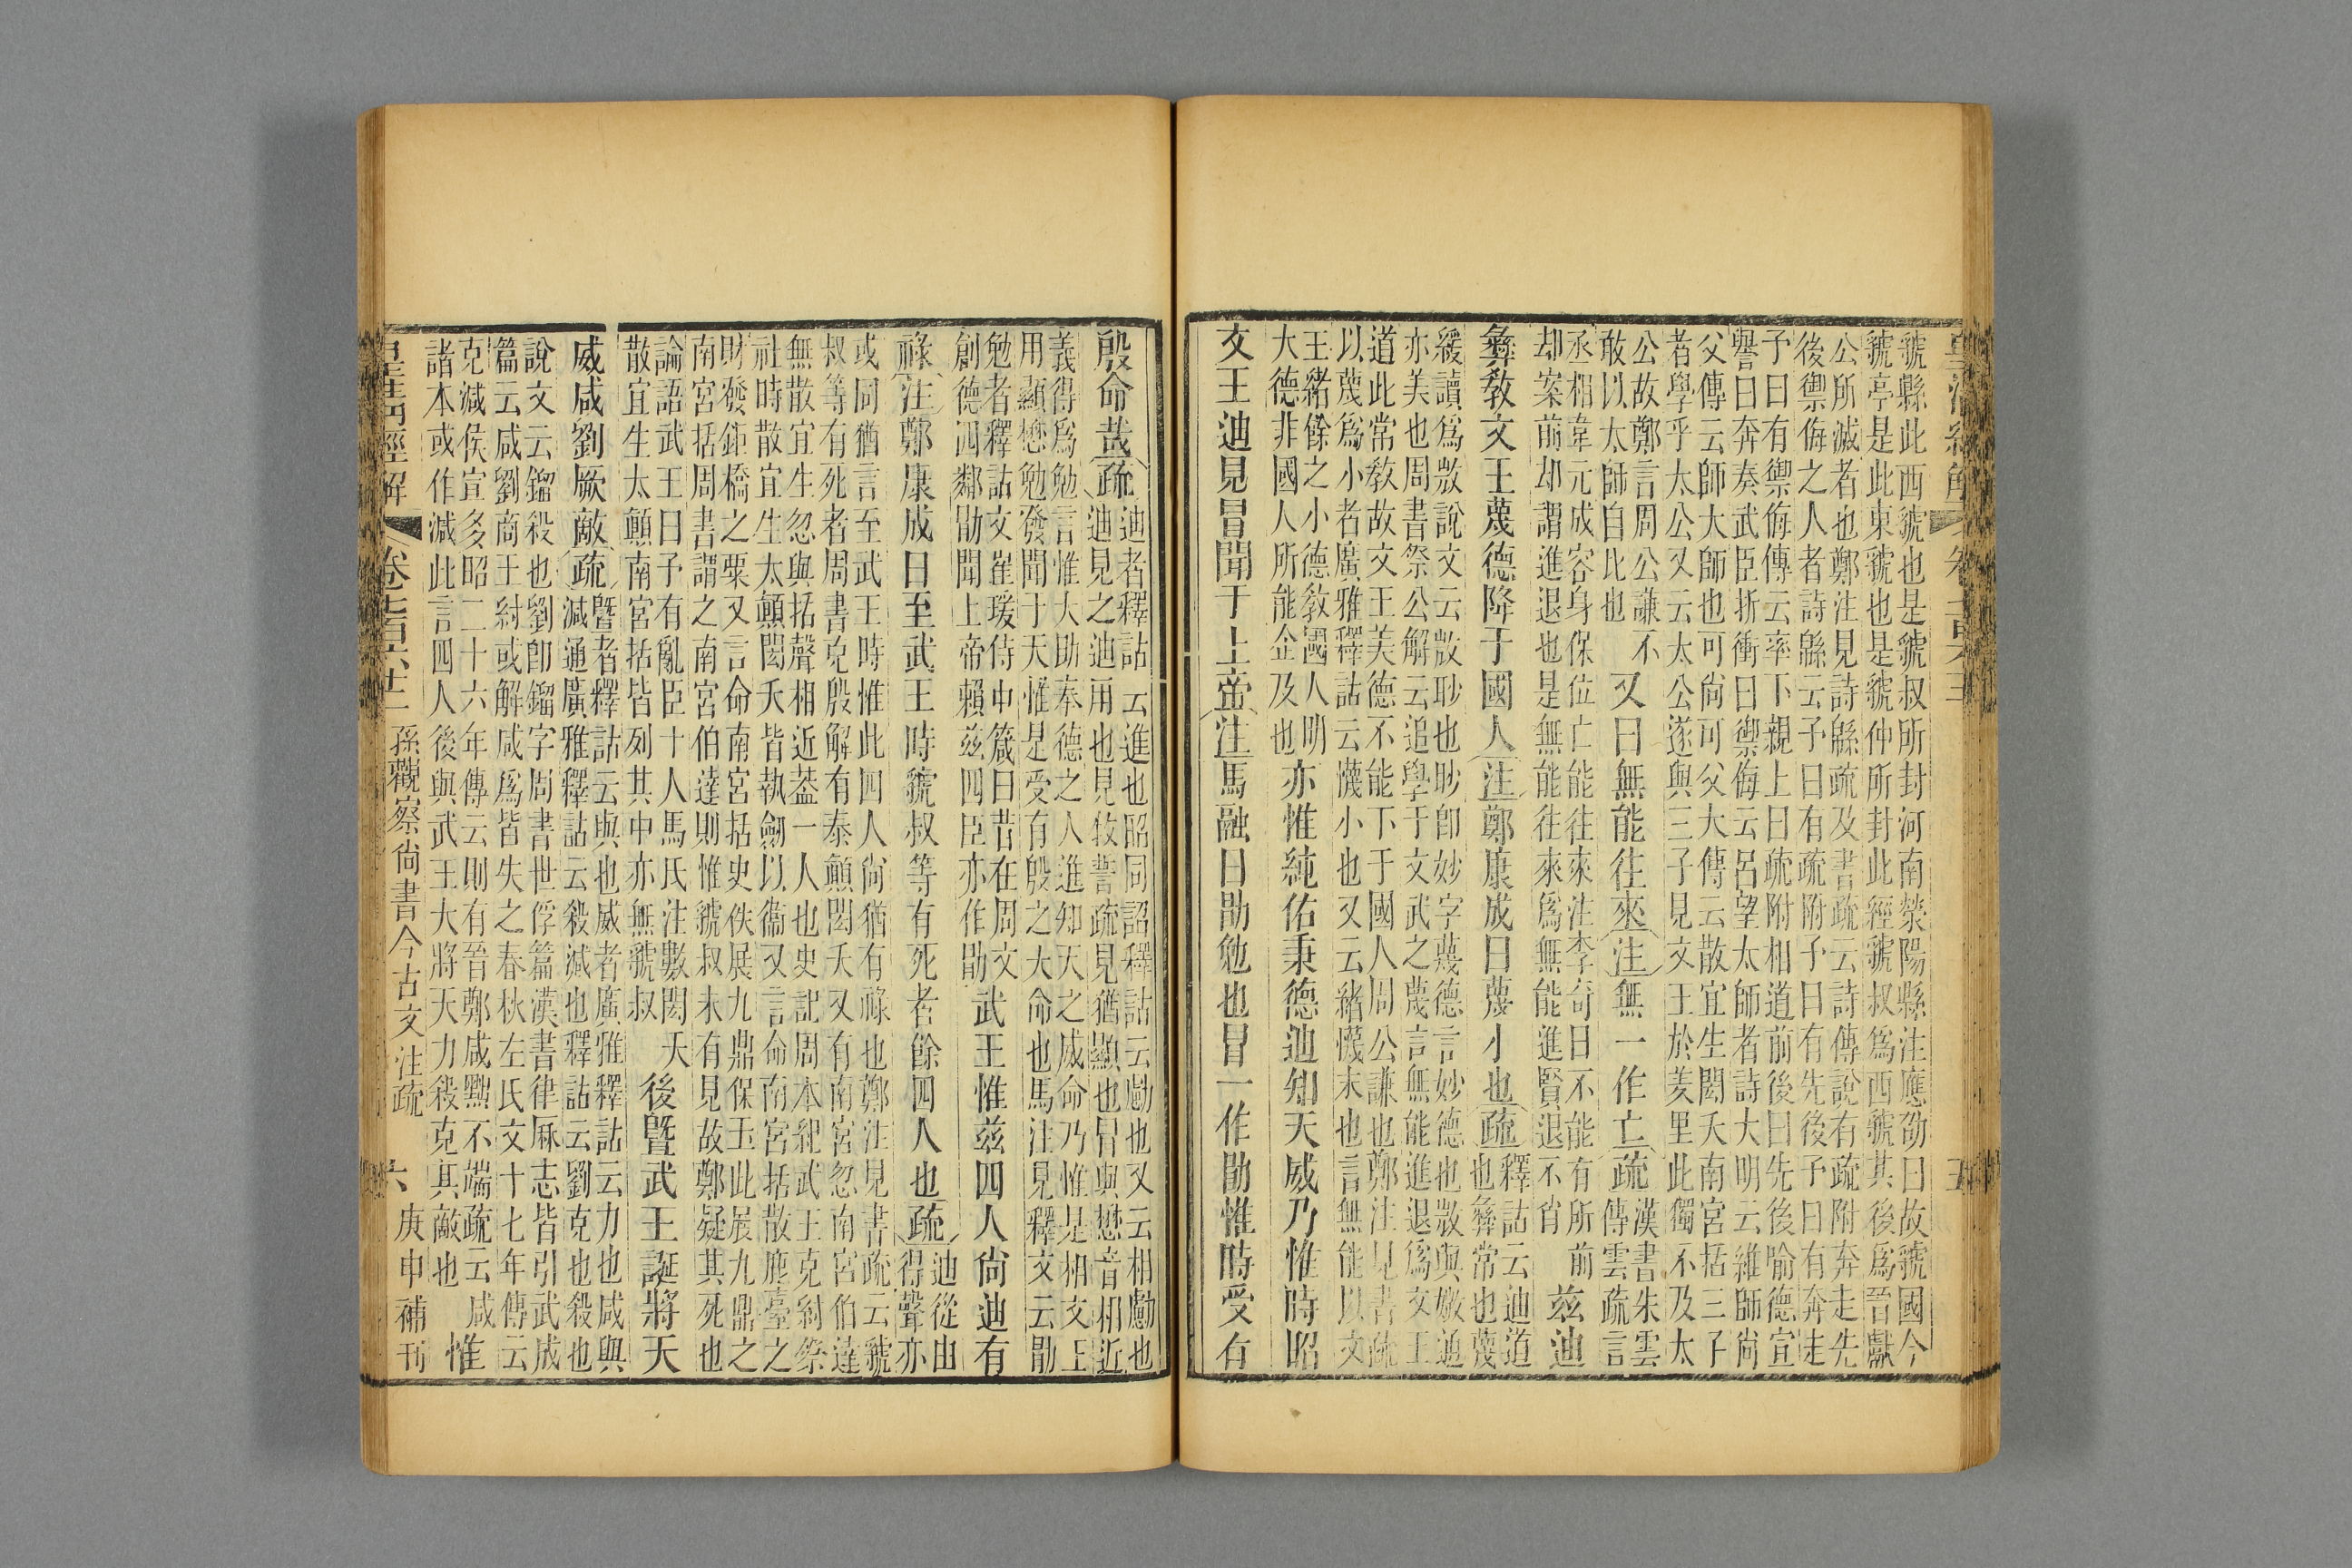 虢縣此西虢也是虢叔所封河南滎陽縣注應劭曰故虢國今
虢亭是此東虢也是虢仲所封此經虢叔爲西虢其後爲晉獻
公所滅者也鄭注見詩緜疏及書疏云詩傳說有疏附奔走先
後禦侮之人者詩緜云予曰有疏附予曰有先後予曰有奔走
予曰有禦侮傳云率下親上曰疏附相道前後曰先後喻德宣
譽曰奔奏武臣折衝曰禦侮云呂望太師者詩大明云維師尚
父傳云師大師也可尚可父大傳云散宜生閎夭南宮括三子
者學乎太公又云太公遂與三子見文王於羑里此獨不及太
公故鄭言周公謙不
敢以太師自比也
又曰無能往來注無一作亡疏
漢書朱雲
傳雲疏言
丞相韋元成容身保位亡能往來注李奇曰不能有所前
却案前却謂進退也是無能往來爲無能進賢退不肖
茲迪
彝教文王蔑德降于國人注鄭康成曰蔑小也疏
釋詁云迪道
也彝常也蔑
緩讀爲敳說文云敳眇也眇卽妙字蔑德言妙德也敳與媺通
亦美也周書祭公解云追學于文武之蔑言無能進退爲文王
道此常教故文王美德不能下于國人周公謙也鄭注見書疏
以蔑爲小者廣雅釋詁云懱小也又云緒懱末也言無能以文
王緒餘之小德教國人明
大德非國人所能企及也
亦惟純佑秉德迪知天威乃惟時昭
文王迪見冒聞于上帝注馬融曰勖勉也冒一作勖惟時受有
殷命哉疏
迪者釋詁云進也昭同詔釋詁云勴也又云相勴也
迪見之迪用也見牧誓疏見猶顯也冒與懋音相近
義得爲勉言惟大助奉德之人進知天之威命乃惟是相文王
用顯懋勉發聞于天惟是受有殷之大命也馬注見釋文云勖
勉者釋詁文崔瑗侍中箴曰昔在周文
創德西鄰勖聞上帝賴茲四臣亦作勖
武王惟茲四人尚迪有
祿注鄭康成曰至武王時虢叔等有死者餘四人也疏
迪從由
得聲亦
或同猶言至武王時惟此四人尚猶有祿也鄭注見書疏云虢
叔等有死者周書克殷解有泰顛閎夭又有南宮忽南宮伯達
無散宜生忽與括聲相近葢一人也史記周本紀武王克紂祭
社時散宜生太顛閎夭皆執劒以衞又言命南宮括散鹿臺之
財發鉅橋之粟又言命南宮括史佚展九鼎保玉此展九鼎之
南宮括周書謂之南宮伯達則惟虢叔未有見故鄭疑其死也
論語武王曰予有亂臣十人馬氏注數閎夭
散宜生太顛南宮括皆列其中亦無虢叔
後曁武王誕將天
威咸劉厥敵疏
曁者釋詁云與也威者廣雅釋詁云力也咸與
減通廣雅釋詁云殺減也釋詁云劉克也殺也
說文云鎦殺也劉卽鎦字周書世俘篇漢書律厤志皆引武成
篇云咸劉商王紂或解咸爲皆失之春秋左氏文十七年傳云
克減侯宣多昭二十六年傳云則有晉鄭咸黜不端疏云咸
諸本或作減此言四人後與武王大將天力殺克其敵也
惟
皇淸經解 孫觀察尚書今古文注疏 六 庚申補刊